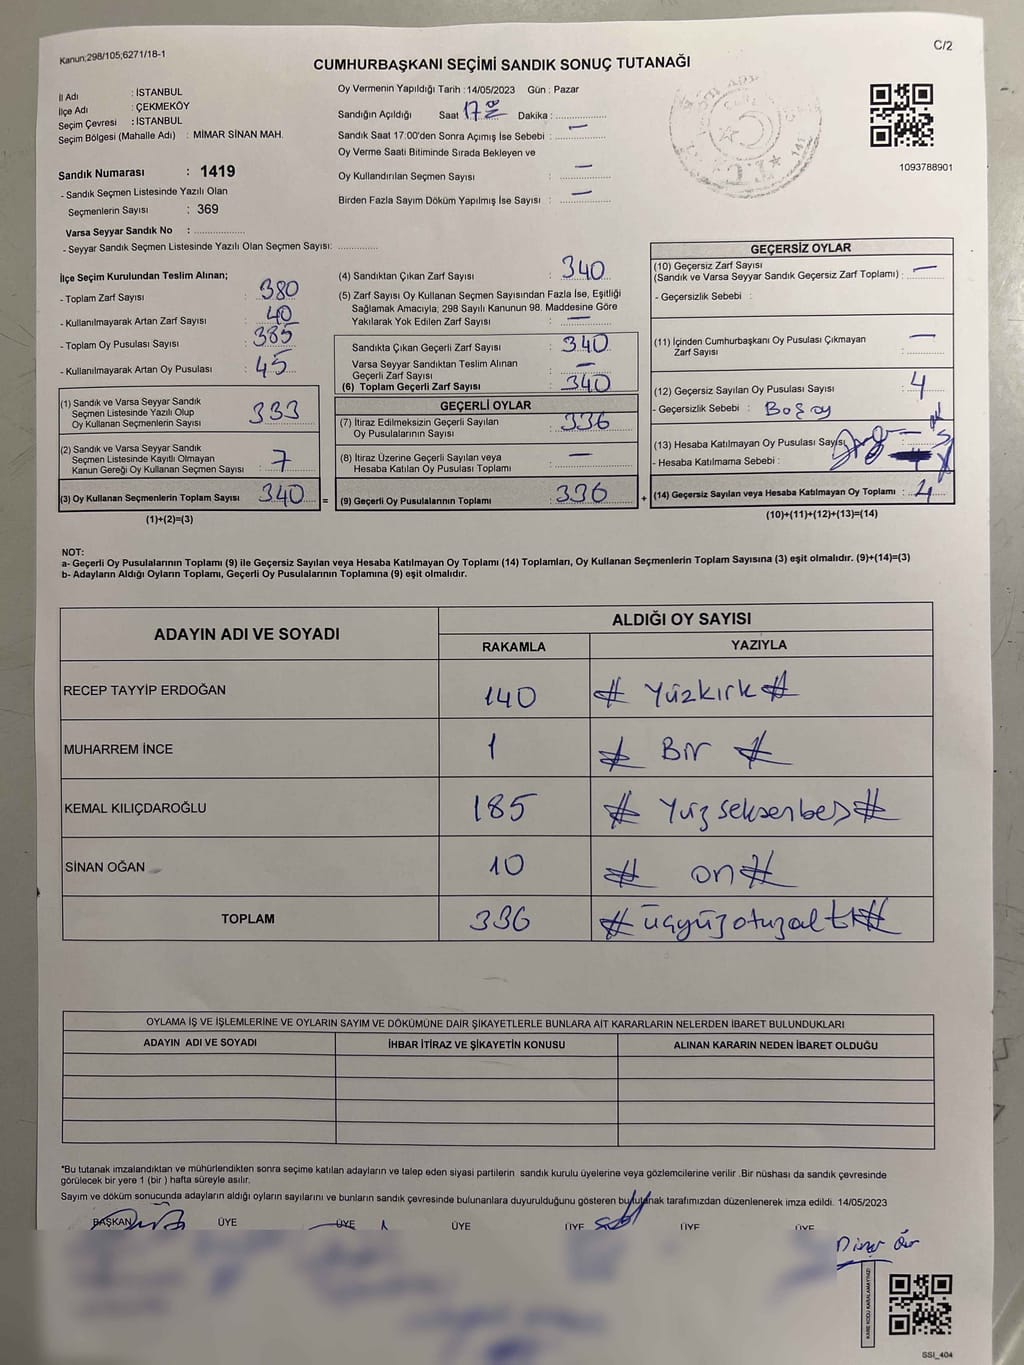 Kanun;298/105;6271/18-1
C/2
CUMHURBAŞKANI SEÇİMİ SANDIK SONUÇ TUTANAĞI
İl Adı : İSTANBUL
İlçe Adı : ÇEKMEKÖY
Seçim Çevresi : İSTANBUL
Seçim Bölgesi (Mahalle Adı) : MİMAR SİNAN MAH.
Sandık Numarası : 1419
- Sandık Seçmen Listesinde Yazılı Olan
Seçmenlerin Sayısı : 369
Varsa Seyyar Sandık No : ....................
- Seyyar Sandık Seçmen Listesinde Yazılı Olan Seçmen Sayısı: ...............
Oy Vermenin Yapıldığı Tarih :14/05/2023 Gün : Pazar
Sandığın Açıldığı Saat 17 00 Dakika : ....................
Sandık Saat 17:00'den Sonra Açımış İse Sebebi : —
Oy Verme Saati Bitiminde Sırada Bekleyen ve
Oy Kullandırılan Seçmen Sayısı : —
Birden Fazla Sayım Döküm Yapılmış İse Sayısı : —
1093788901
İlçe Seçim Kurulundan Teslim Alınan;
- Toplam Zarf Sayısı : 380
- Kullanılmayarak Artan Zarf Sayısı : 40
- Toplam Oy Pusulası Sayısı : 385
- Kullanılmayarak Artan Oy Pusulası : 45
(1) Sandık ve Varsa Seyyar Sandık
Seçmen Listesinde Yazılı Olup
Oy Kullanan Seçmenlerin Sayısı : 333
(2) Sandık ve Varsa Seyyar Sandık
Seçmen Listesinde Kayıtlı Olmayan
Kanun Gereği Oy Kullanan Seçmen Sayısı : 7
(3) Oy Kullanan Seçmenlerin Toplam Sayısı : 340 =
(1)+(2)=(3)
(4) Sandıktan Çıkan Zarf Sayısı : 340
(5) Zarf Sayısı Oy Kullanan Seçmen Sayısından Fazla İse, Eşitliği
Sağlamak Amacıyla; 298 Sayılı Kanunun 98. Maddesine Göre
Yakılarak Yok Edilen Zarf Sayısı : —
Sandıkta Çıkan Geçerli Zarf Sayısı : 340
Varsa Seyyar Sandıktan Teslim Alınan
Geçerli Zarf Sayısı : —
(6) Toplam Geçerli Zarf Sayısı : 340
GEÇERLİ OYLAR
(7) İtiraz Edilmeksizin Geçerli Sayılan
Oy Pusulalarının Sayısı : 336
(8) İtiraz Üzerine Geçerli Sayılan veya
Hesaba Katılan Oy Pusulası Toplamı : —
(9) Geçerli Oy Pusulalarının Toplamı : 336 +
GEÇERSİZ OYLAR
(10) Geçersiz Zarf Sayısı
(Sandık ve Varsa Seyyar Sandık Geçersiz Zarf Toplamı) : —
- Geçersizlik Sebebi :
(11) İçinden Cumhurbaşkanı Oy Pusulası Çıkmayan
Zarf Sayısı : —
(12) Geçersiz Sayılan Oy Pusulası Sayısı : 4
- Geçersizlik Sebebi : Boş oy
(13) Hesaba Katılmayan Oy Pusulası Sayısı —
- Hesaba Katılmama Sebebi :
(14) Geçersiz Sayılan veya Hesaba Katılmayan Oy Toplamı : 4
(10)+(11)+(12)+(13)=(14)
NOT:
a- Geçerli Oy Pusulalarının Toplamı (9) ile Geçersiz Sayılan veya Hesaba Katılmayan Oy Toplamı (14) Toplamları, Oy Kullanan Seçmenlerin Toplam Sayısına (3) eşit olmalıdır. (9)+(14)=(3)
b- Adayların Aldığı Oyların Toplamı, Geçerli Oy Pusulalarının Toplamına (9) eşit olmalıdır.
ADAYIN ADI VE SOYADI ALDIĞI OY SAYISI
RAKAMLA YAZIYLA
RECEP TAYYİP ERDOĞAN 140 # Yüzkırk #
MUHARREM İNCE 1 # Bir #
KEMAL KILIÇDAROĞLU 185 # Yüzseksenbeş #
SİNAN OĞAN 10 # on #
TOPLAM 336 # üçyüzotuzaltı #
OYLAMA İŞ VE İŞLEMLERİNE VE OYLARIN SAYIM VE DÖKÜMÜNE DAİR ŞİKAYETLERLE BUNLARA AİT KARARLARIN NELERDEN İBARET BULUNDUKLARI
ADAYIN ADI VE SOYADI İHBAR İTİRAZ VE ŞİKAYETİN KONUSU ALINAN KARARIN NEDEN İBARET OLDUĞU
*Bu tutanak imzalandıktan ve mühürlendikten sonra seçime katılan adayların ve talep eden siyasi partilerin sandık kurulu üyelerine veya gözlemcilerine verilir .Bir nüshası da sandık çevresinde
görülecek bir yere 1 (bir ) hafta süreyle asılır.
Sayım ve döküm sonucunda adayların aldığı oyların sayılarını ve bunların sandık çevresinde bulunanlara duyurulduğunu gösteren bu tutanak tarafımızdan düzenlenerek imza edildi. 14/05/2023
BAŞKAN ÜYE ÜYE ÜYE ÜYE ÜYE ÜYE
KARE KODU KARALAMAYINIZ!
SSI_404